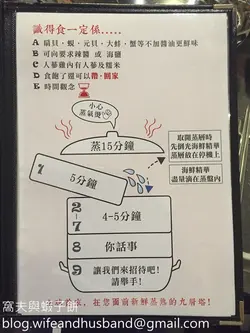 識得食一定係.....
A 扇貝、蝦、元貝、大蟶、蟹等不加醬油更鮮味
B 可向要求辣醬 或 海鹽
C 人參雞內有人參及糯米
D 食飽了還可以帶回家
E 時間觀念
小心
蒸氣燙
蒸15分鐘
取開蒸層時
先倒光海鮮精華
蒸層放在停機上
7 5分鐘
海鮮精華
盡量滴在蒸盤內
2-7 4-5分鐘
8 你話事
9 讓我們來招待吧!
請舉手!
在您面前新鮮蒸熟的九層塔!
窩夫與蝦子餅
blog.wifeandhusband@gmail.com